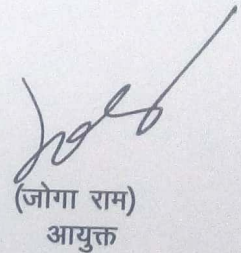 (जोगा राम)
आयुक्त